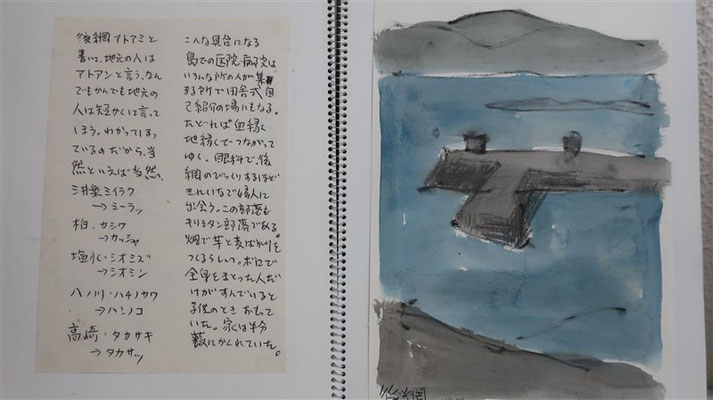 後網 アトアミと
書いて、地元の人は
アトアンと言う。なん
でもかんでも地元の
人は短かくに言って
しまう。わかってしまっ
ているのだから、当
然といえば当然。
三井楽 ミイラク
→ ミーラッ
柏・カシワ
→カッシャ
塩水・シオミズ
→シオミン
八ノ川・ハチノカワ
→ハンノコ
高崎・タカサキ
→タカサッ
こんな具合になる
島での医院、病院は
いろんな所の人が集
まる所で田舎式自
己紹介の場にもなる。
たどれば血縁、
地縁でつながって
ゆく。眼科で、後
網のびっくりするほど
きれいなご婦人に
出会う。この部落も
キリシタン部落である。
畑で芋と麦ばかりを
つくるらしい。ボロで
全身をまとった人だ
けがすんでいると
子供のときおもって
いた。家は半分
藪にかくれていた。
後網